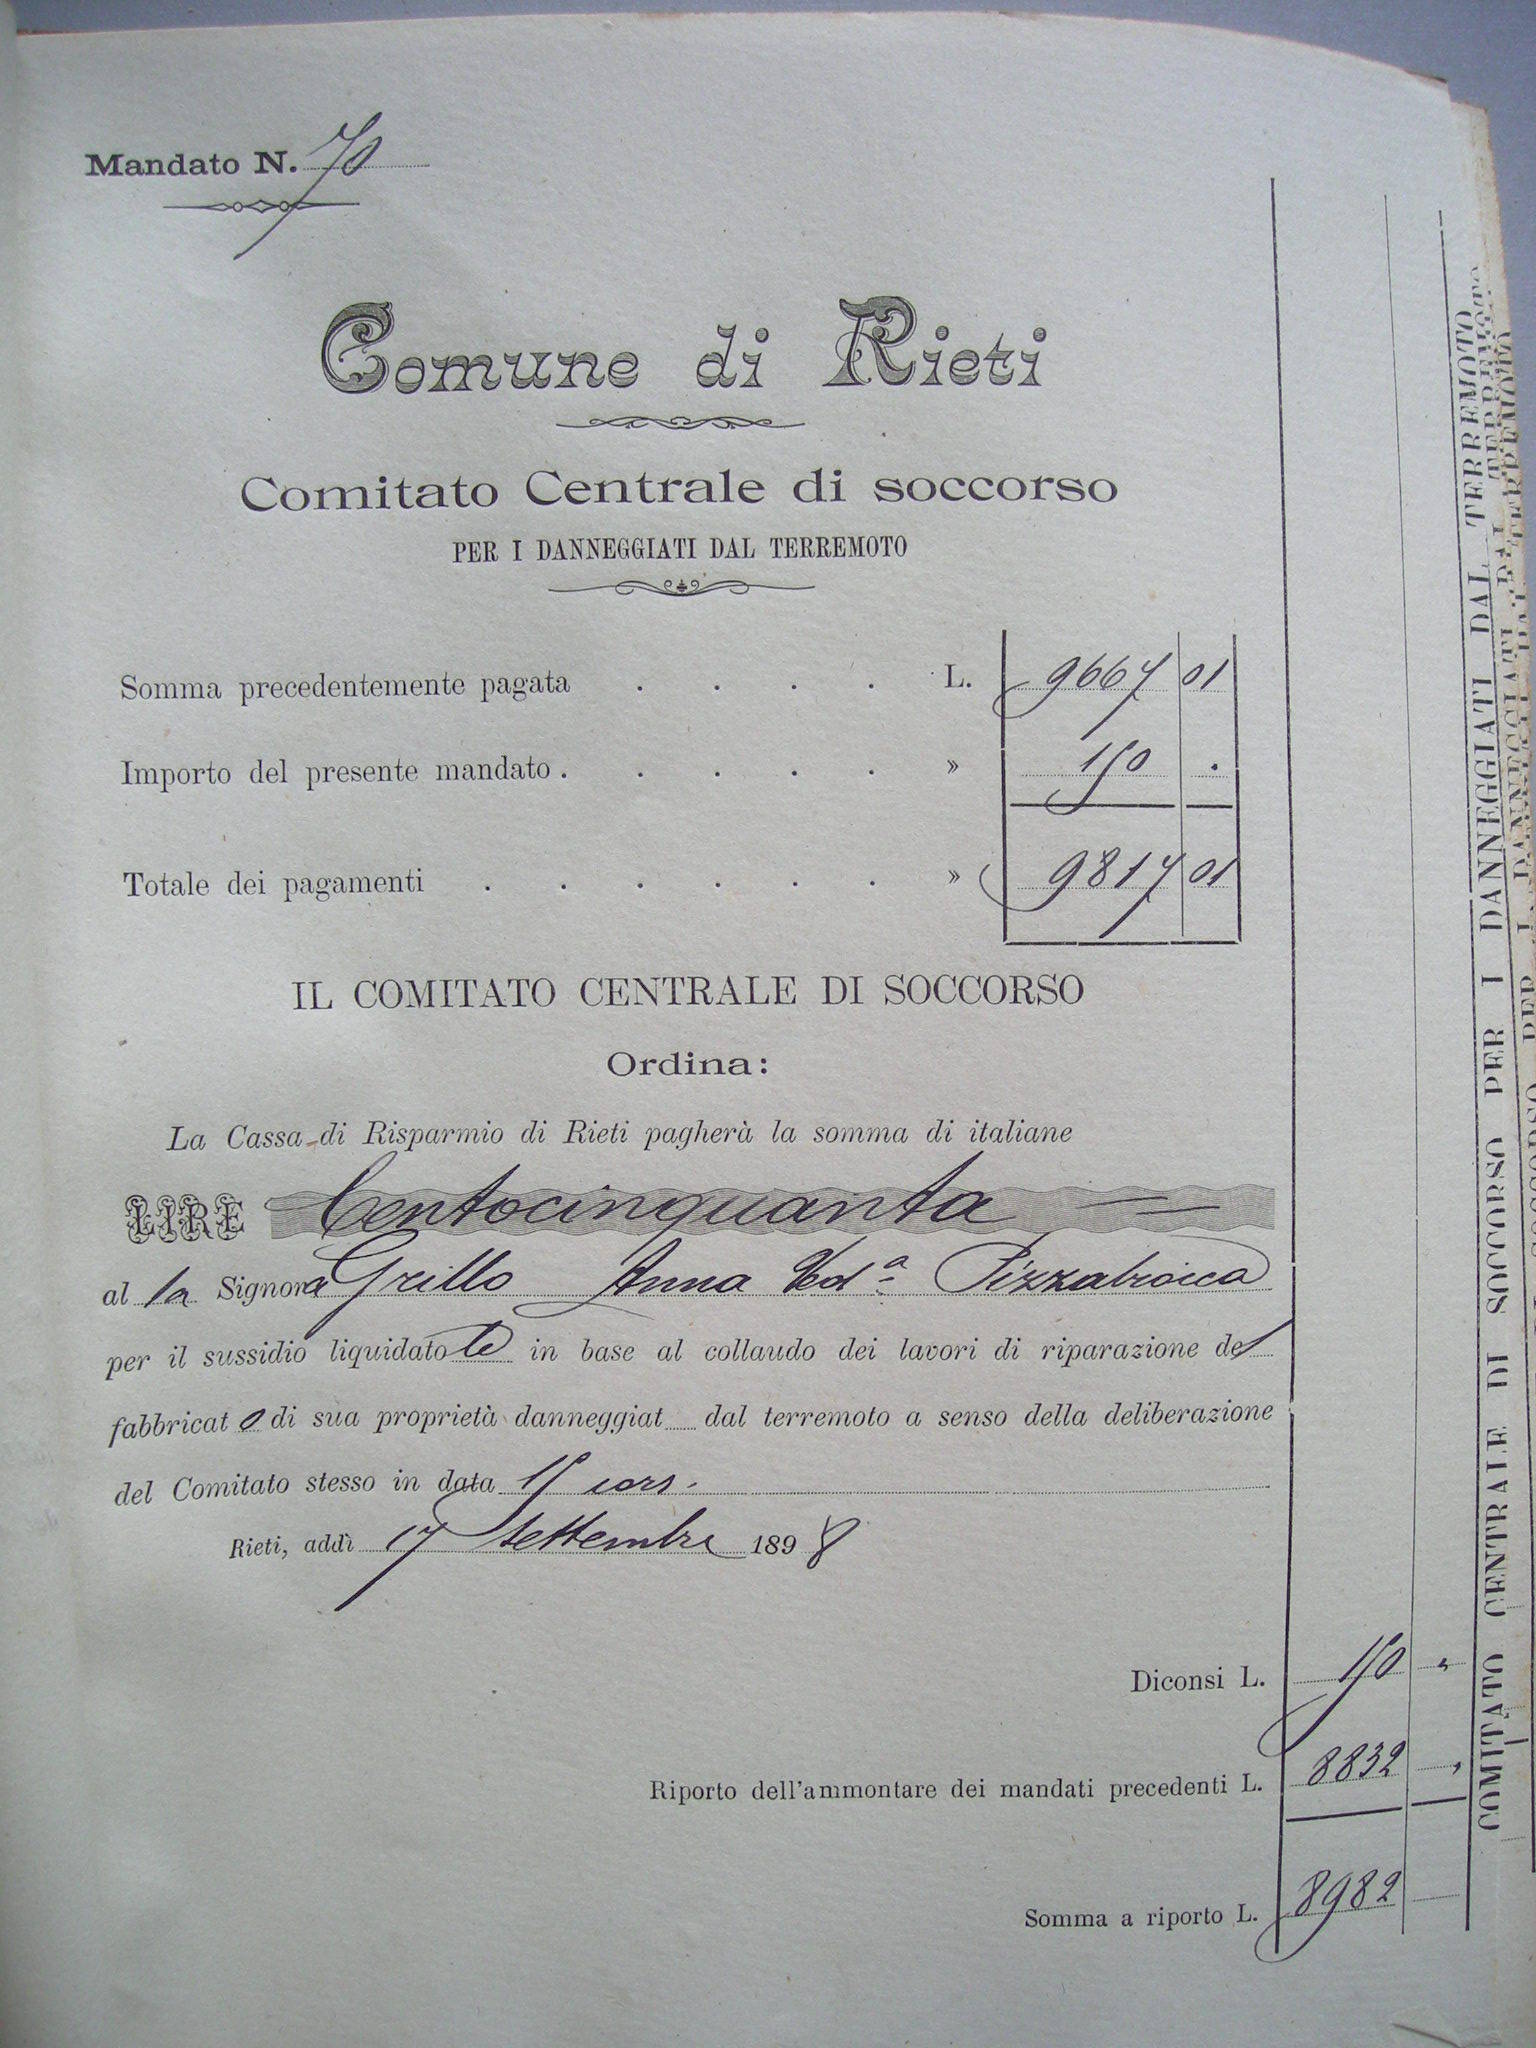 Mandato N. 70
Comune di Rieti
Comitato Centrale di soccorso
PER I DANNEGGIATI DAL TERREMOTO
Somma precedentemente pagata . . . . L. 9667 01
Importo del presente mandato . . . . . » 150 .
Totale dei pagamenti . . . . . » 9817 01
IL COMITATO CENTRALE DI SOCCORSO
Ordina:
La Cassa di Risparmio di Rieti pagherà la somma di italiane
LIRE Centocinquanta
al la Signora Grillo Anna Ved.a
per il sussidio liquidatole in base al collaudo dei lavori di riparazione del
fabbricato di sua proprietà danneggiat dal terremoto a senso della deliberazione
del Comitato stesso in data 15 cors.
Rieti, addì 17 Settembre 1898
Diconsi L. 150 "
Riporto dell'ammontare dei mandati precedenti L. 8832 "
Somma a riporto L. 8982
COMITATO CENTRALE DI SOCCORSO PER I DANNEGGIATI DAL TERREMOTO